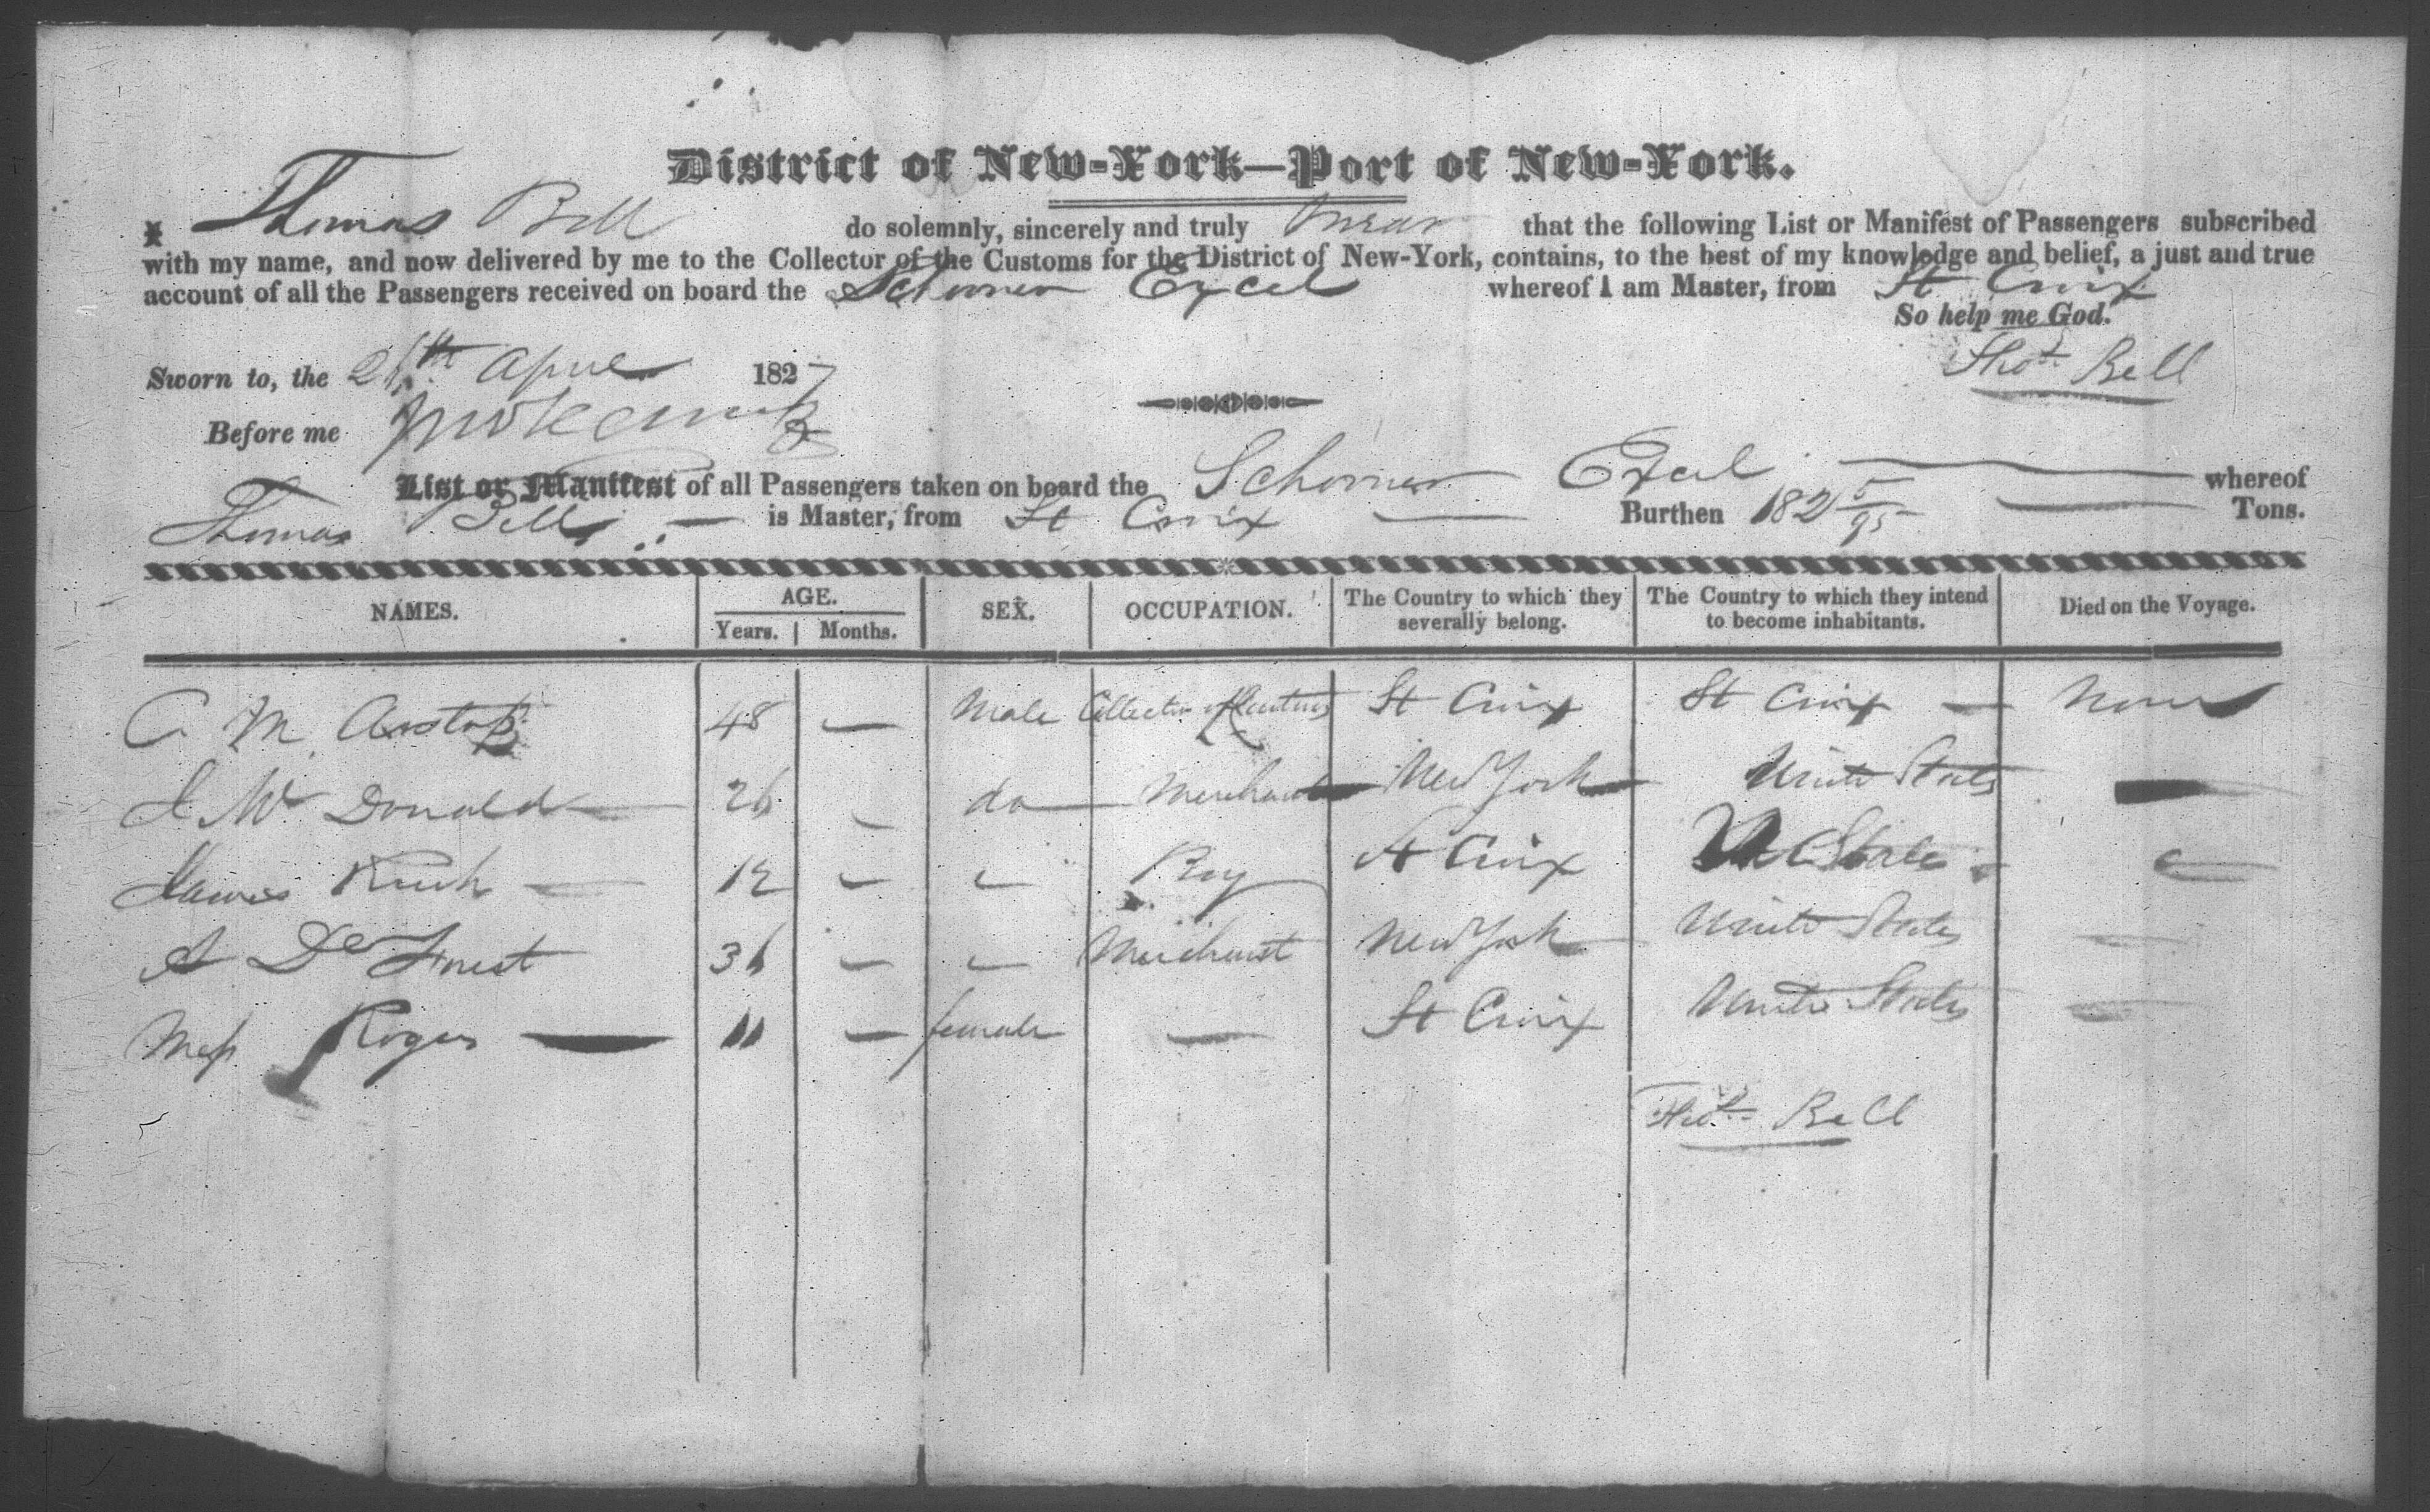 District of New-York—Port of New-York.
I Thomas Bell do solemnly, sincerely and truly swear that the following List or Manifest of Passengers subscribed
with my name, and now delivered by me to the Collector of the Customs for the District of New-York, contains, to the best of my knowledge and belief, a just and true
account of all the Passengers received on board the Schooner Excel whereof I am Master, from St Croix
So help me God.
Sworn to, the 26th April 1827 Thos Bell
Before me
List or Manifest of all Passengers taken on board the Schooner Excel whereof
Thomas Bell is Master, from St Croix Burthen 182 5/95 Tons.
NAMES. AGE. Years. Months. SEX. OCCUPATION. The Country to which they severally belong. The Country to which they intend to become inhabitants. Died on the Voyage.
C. M. 48 — Male Collector of Customs St Croix St Croix — None
J Mc Donald 26 — do Merchant New York United States —
James 12 — — Boy St Croix U States —
A De Forest 36 — — Merchant New York United States —
Miss Rogers 11 — female — St Croix United States —
Thos Bell